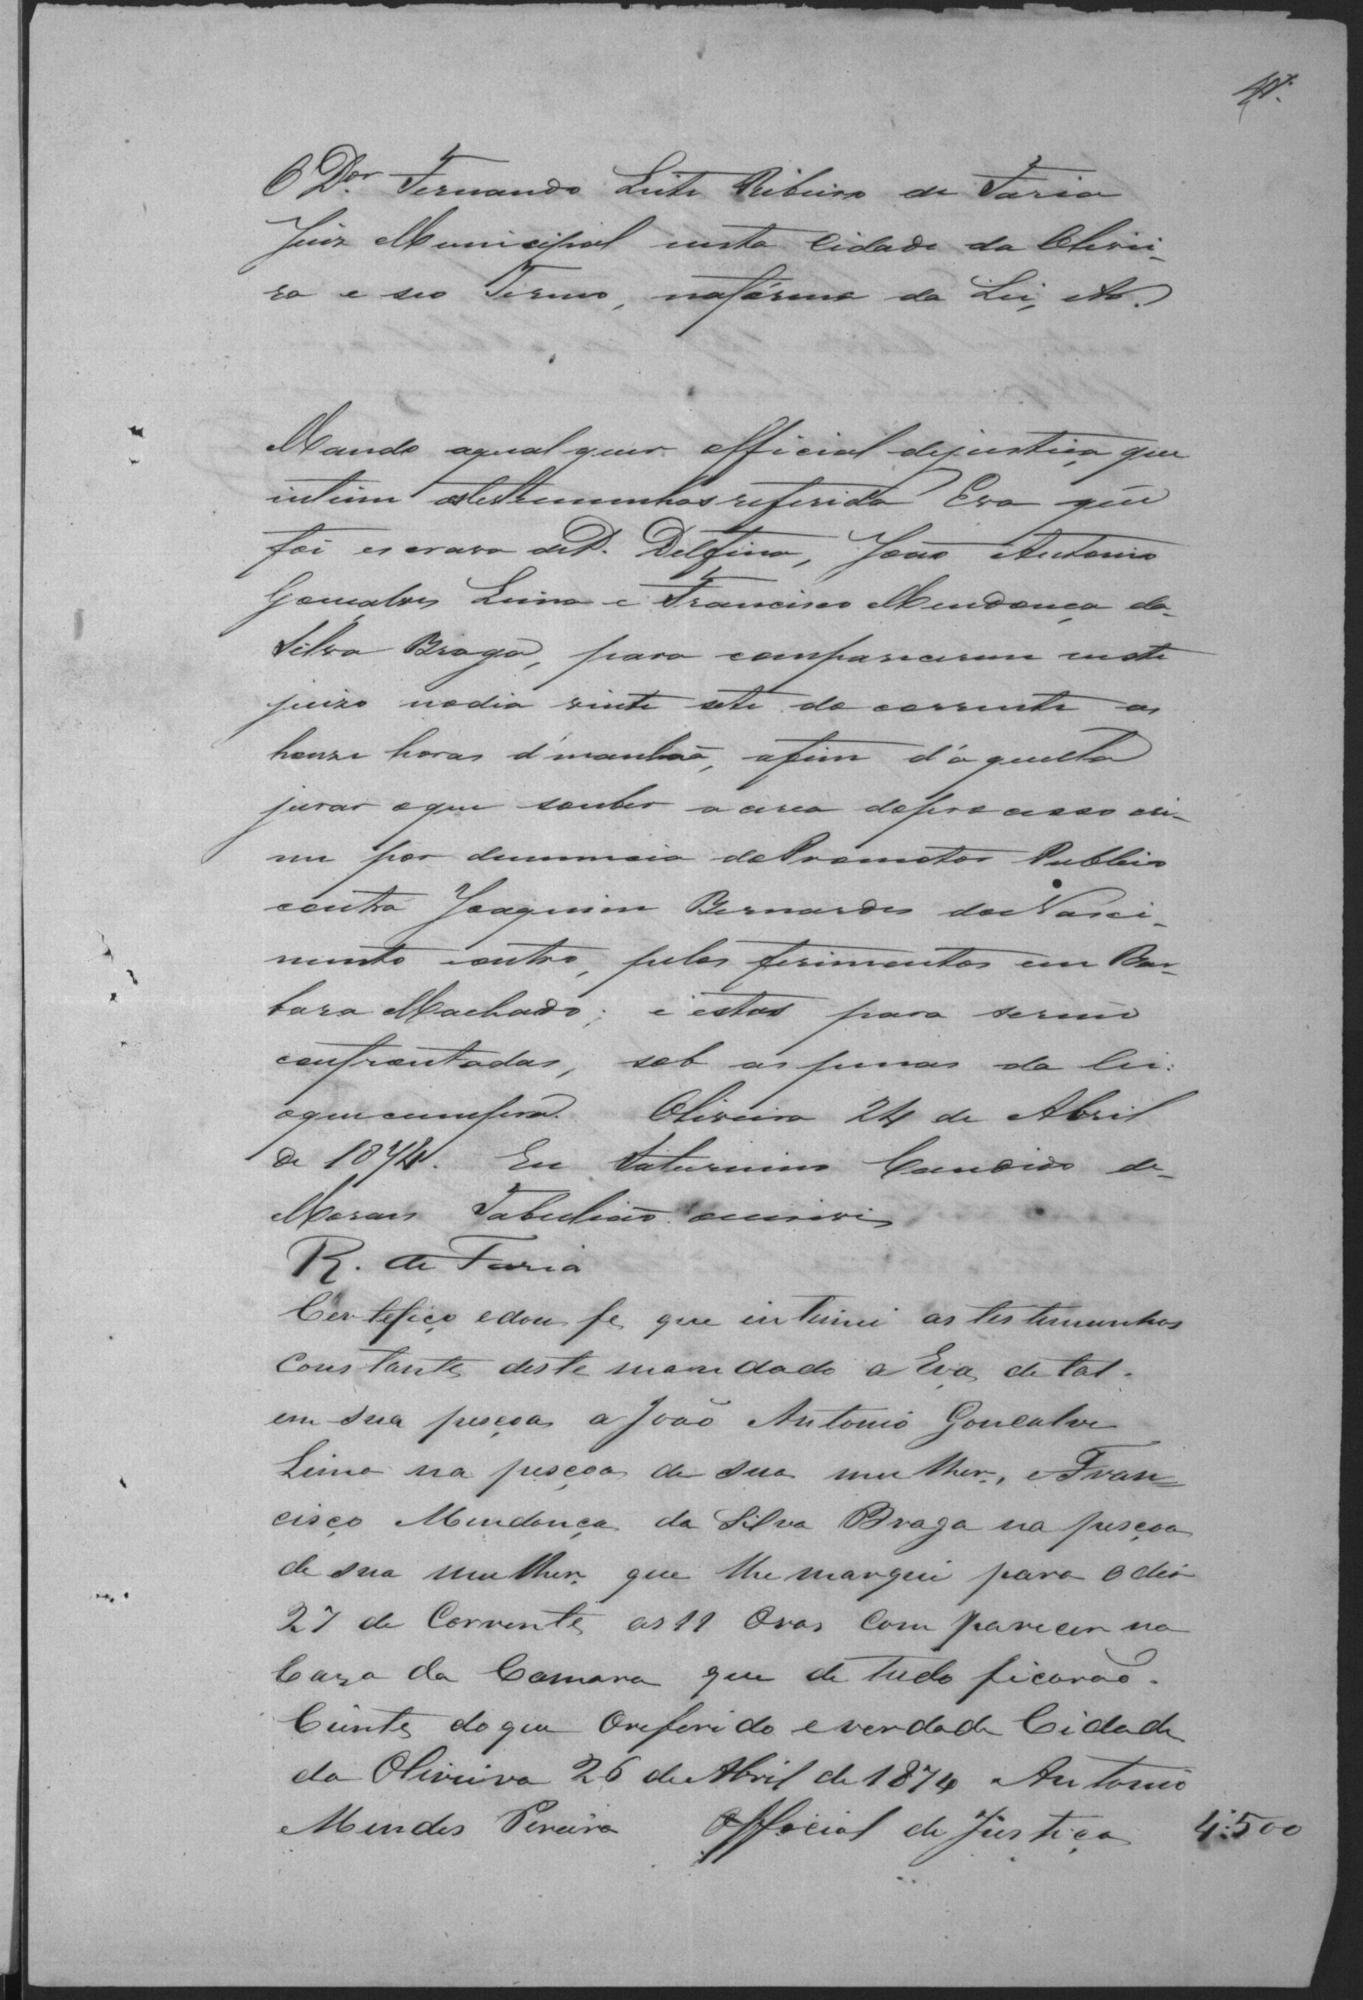 O Dor. Fernando Leite Ribeiro de Faria
Juiz Municipal nesta Cidade da Olivei-
ra e seo Termo, nafórma da Lei, etc.
Mando aqualquer official dejustiça que
intime astestemunhas referida Eva que
foi escrava de D. Delfina, João Antonio
Gonçalves Lima e Francisco Mendonça da
Silva Braga, para comparecerem neste
juizo nodia vinte sete do corrente as
honze horas d'manhaã, afim d'aquella
jurar oque souber acerca doprocesso cri-
me por denuncia doPromotor Publico
contra Joaquim Bernardes do Nasci-
mento eoutro, pelos ferimentos em Bar-
bara Machado; e estas para serem
confrontadas, sob as penas da lei:
oquecumpra. Oliveira 24 de Abril
de 1874. Eu Saturnino Candido de
Moraes Tabelião oescrevi
R. de Faria
Certefiço edou fe que intimei as testemunhas
Constante deste mandado a Eva de tal.
em sua pesçoa a João Antonio Goncalve
Lima na pesçoa de sua mulher, e Fran=
cisço Mendonça da Silva Braga na pesçoa
de sua mulher, que lhe marquei para o dia
27 de Corrente as 11 Oras Com parecer na
Caza da Camara que de tudo ficarão.
Ciente doque Oreferido e verdade Cidade
da Oliveira 26 de Abril de 1874 Antonio
Mendes Pereira Official de Justiça 4:500